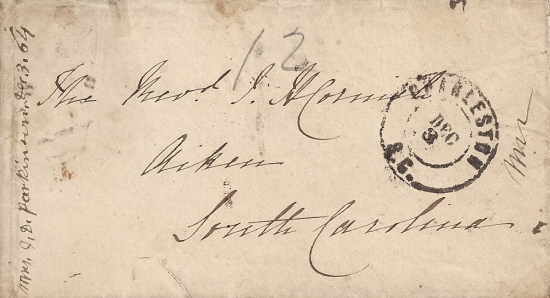 12
The Revd. J. H Cornish
Aiken
South Carolina
CHARLESTON S.C.
DEC
3
Mrs. J. D. Parkinson Dec 3. 64